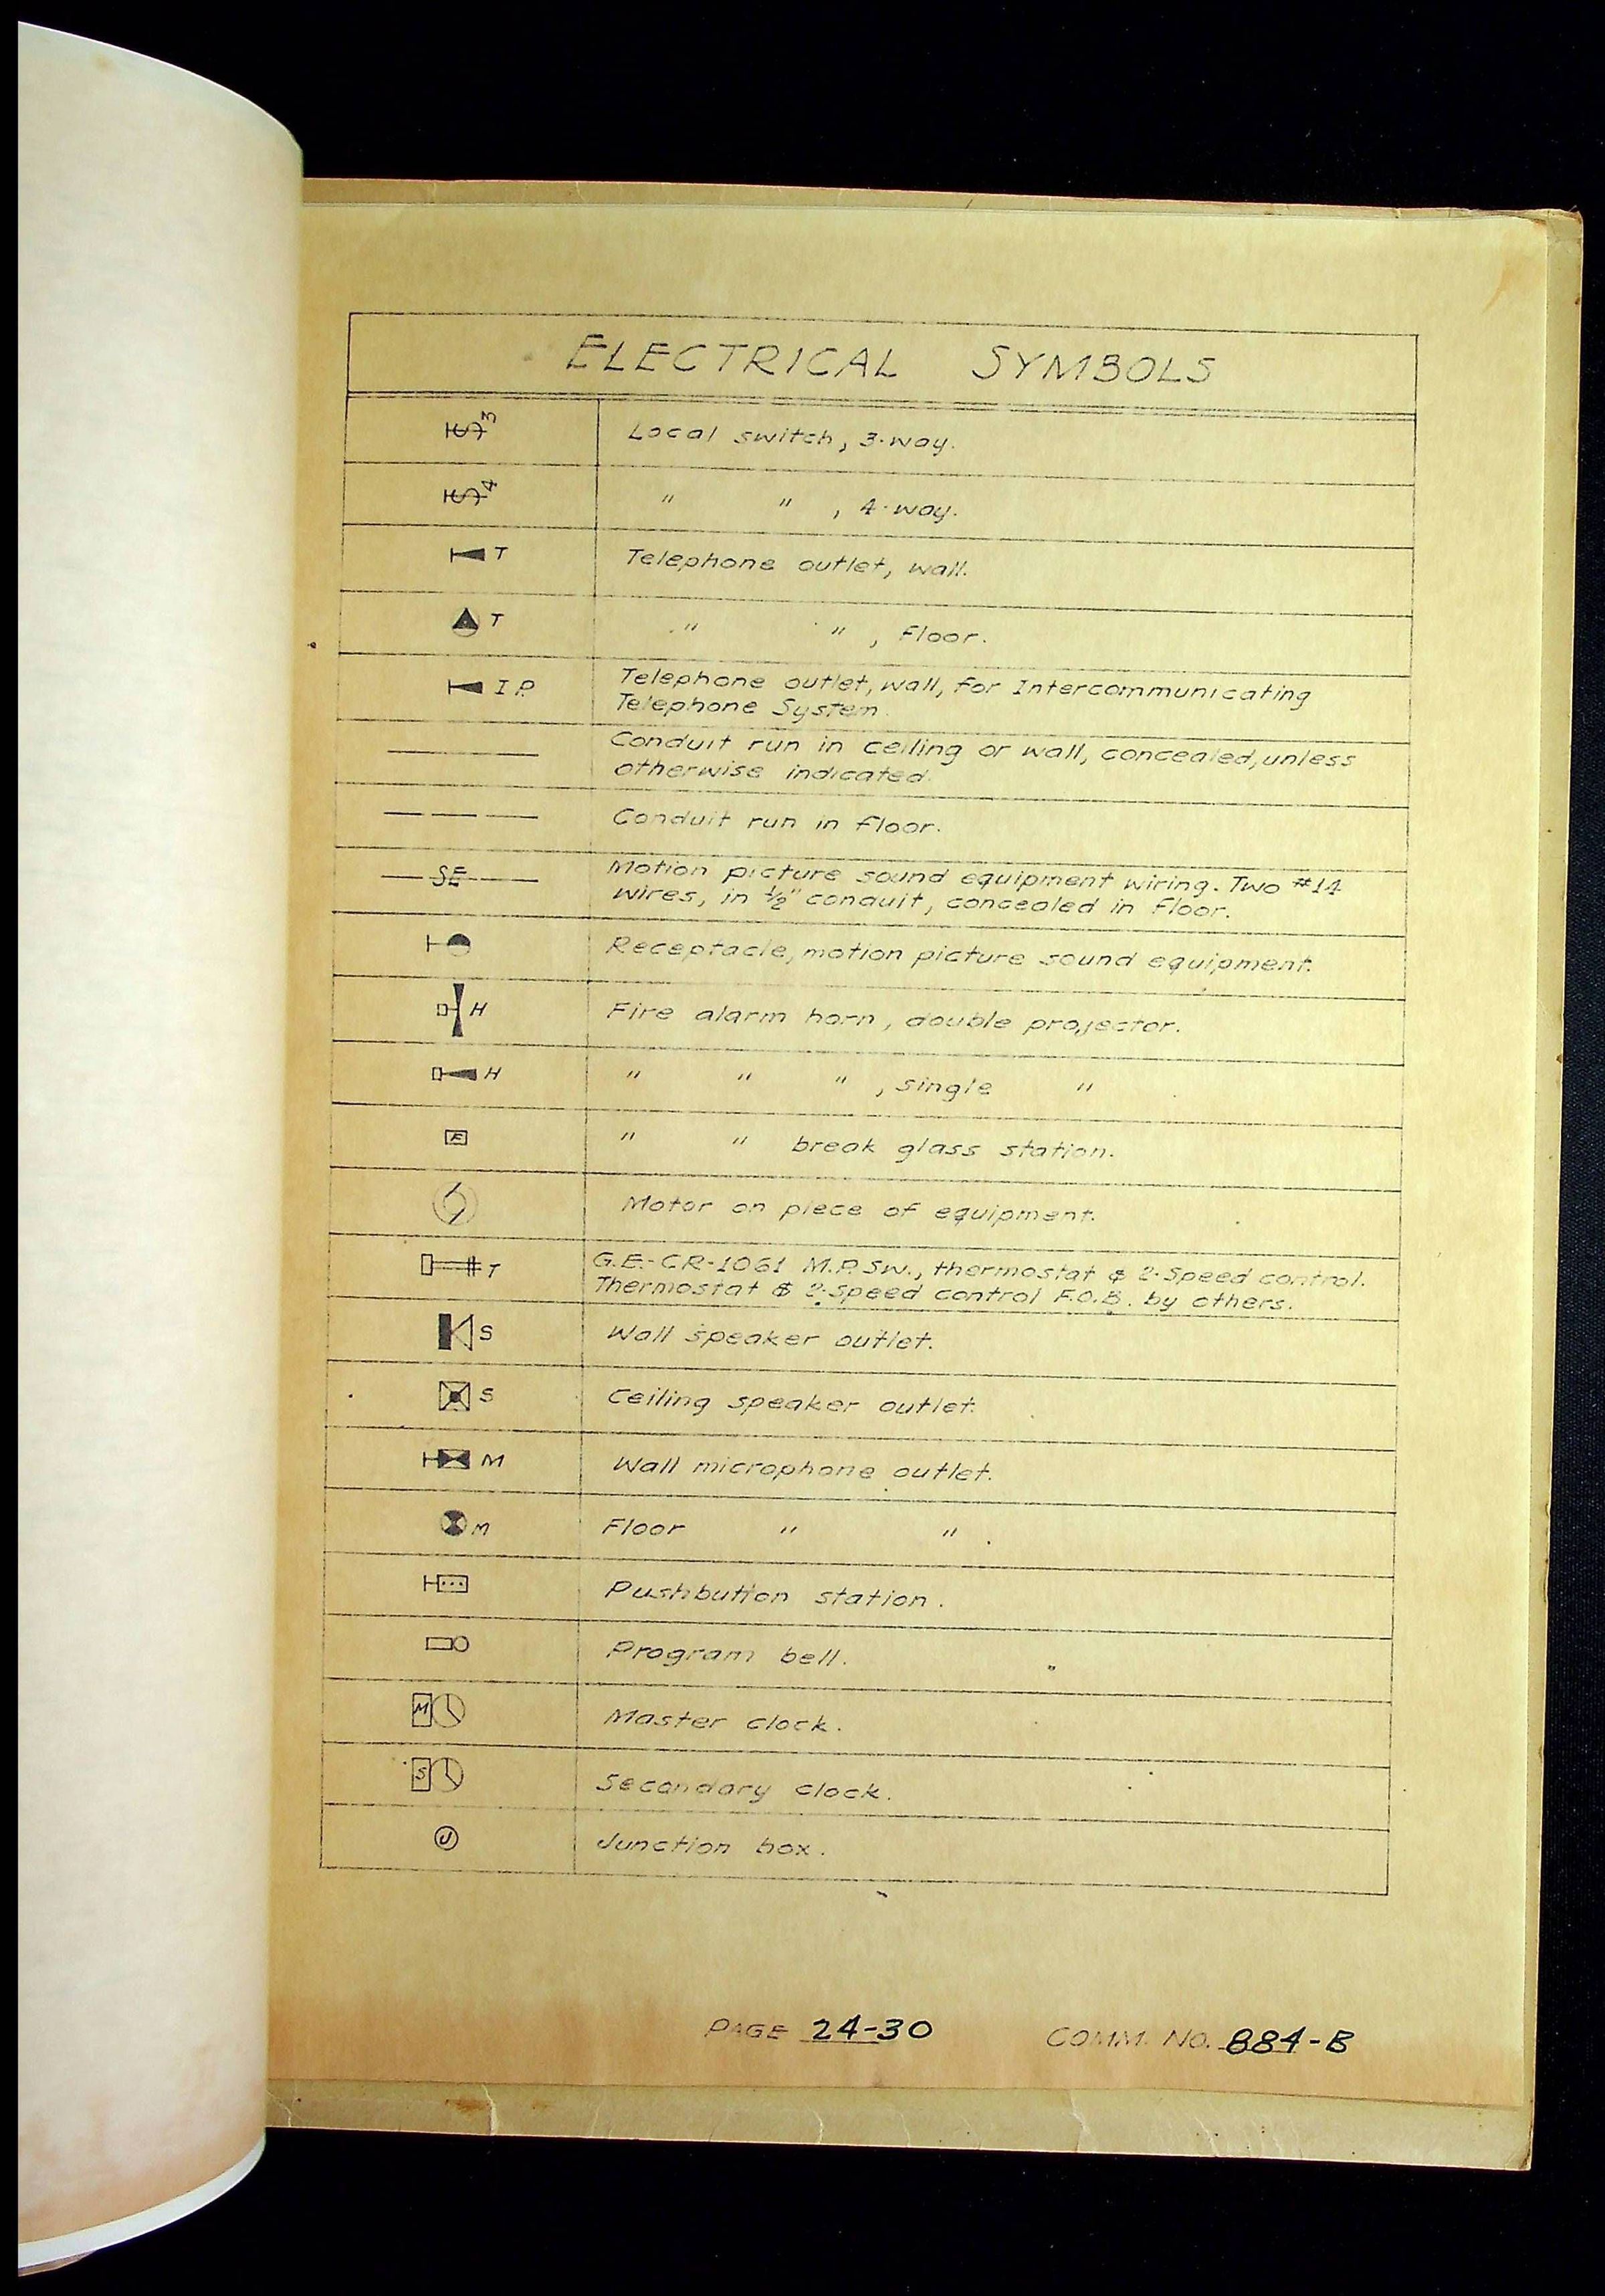 ELECTRICAL SYMBOLS
S 3 Local switch, 3-way.
S 4 " " , 4-way.
T Telephone outlet, wall.
T " " , floor.
I.P. Telephone outlet, wall, for Intercommunicating
Telephone System.
Conduit run in ceiling or wall, concealed, unless
otherwise indicated.
Conduit run in floor.
SE Motion picture sound equipment wiring. Two #14
wires, in ½" conduit, concealed in floor.
Receptacle, motion picture sound equipment.
H Fire alarm horn, double projector.
H " " " , single "
F " " break glass station.
Motor on piece of equipment.
T G.E.-CR-1061 M.P. Sw., thermostat & 2-Speed control.
Thermostat & 2-Speed control F.O.B. by others.
S Wall speaker outlet.
S Ceiling speaker outlet.
M Wall microphone outlet.
M Floor " " .
Pushbutton station.
Program bell.
M Master clock.
S Secondary clock.
J Junction box.
PAGE 24-30 COMM. NO. 884-B